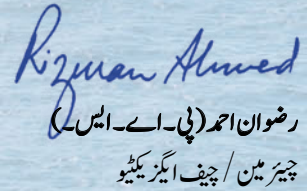 Rizwan Ahmed
رضوان احمد (پی۔اے۔ایس۔)
چیئر مین / چیف ایگزیکٹیو